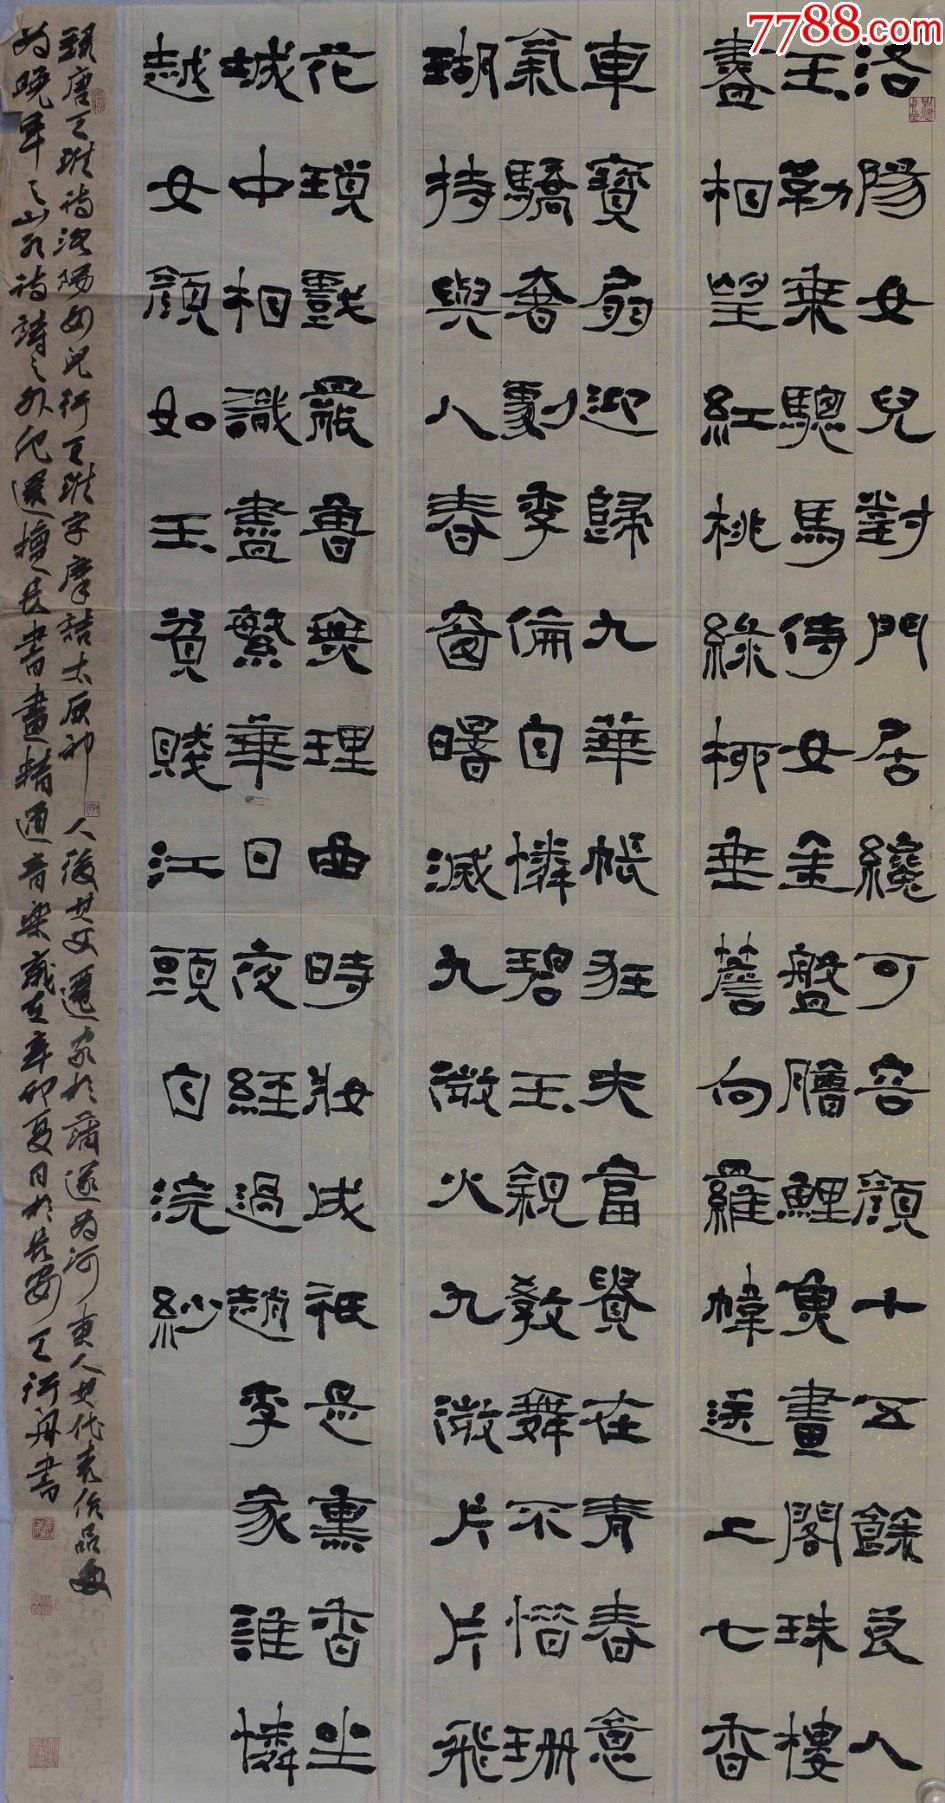 7788.com
洛陽女兒對門居纔可容顏十五餘良人
玉勒乘驄馬侍女金盤膾鯉魚畫閣珠樓
盡相望紅桃綠柳垂簷向羅幃送上七香
車寶扇迎歸九華帳狂夫富貴在青春意
氣驕奢劇季倫自憐碧玉親教舞不惜珊
瑚持與人春窗曙滅九微火九微片片飛
花瑣戲罷曾無理曲時妝成祗是熏香坐
城中相識盡繁華日夜經過趙李家誰憐
越女顏如玉貧賤江頭自浣紗
録唐王維詩洛陽女兒行王維字摩詰太原祁人後其父遷家於蒲遂為河東人其代表作品多
為晚年之山水詩詩之外他還擅長書畫精通音樂歲在辛卯夏日於長安王書